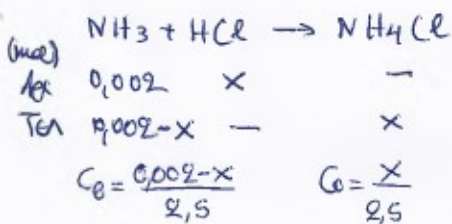 NH3 + HCl → NH4Cl
(mol)
Αρχ 0,002 x —
Τελ 0,002-x — x
Cβ = 0,002-x / 2,5 Co = x / 2,5